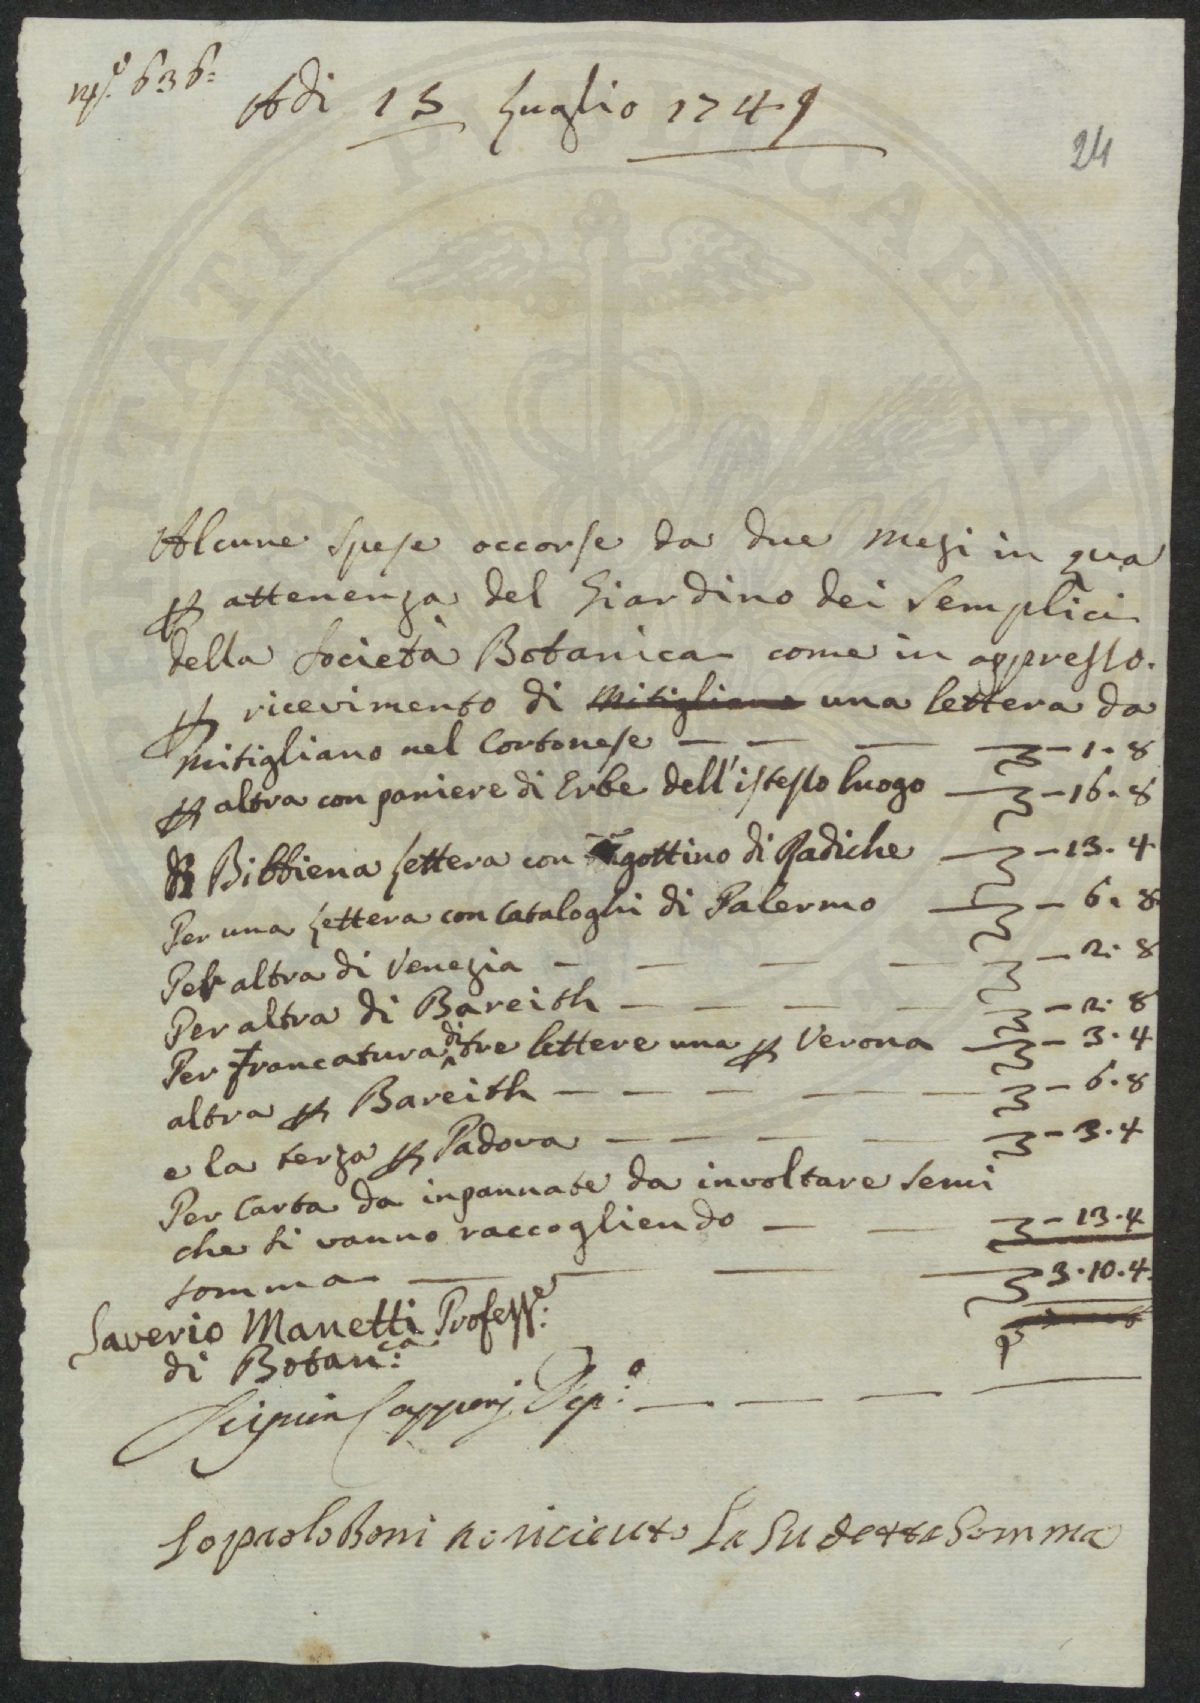 N.º 636.
Adi 15 Luglio 1749
24
Alcune spese occorse da due Mesi in qua
p attenenza del Giardino dei Semplici
della Società Botanica come in appresso.
p ricevimento di Mitigliano una lettera da
Mitigliano nel Cortonese — — — — 1. 8
p altra con paniere di Erbe dell'istesso luogo — — 16. 8
Bibbiena Lettera con gottino di Radiche — — 13. 4
Per una Lettera con Cataloghi di Palermo — — 6. 8
Per altra di Venezia — — — — — 2. 8
Per altra di Bareith — — — — — 2. 8
Per francatura di tre lettere una p Verona — — 3. 4
altra p Bareith — — — — — — 6. 8
e la terza p Padova — — — — — 3. 4
Per Carta da inpannate da involtare Semi
che si vanno raccogliendo — — — 13. 4
Somma — — — — 3. 10. 4.
Saverio Manetti Profess.e
di Botan:ca
Scipion Capponj Dep:o — — — —
Io paolo Boni ho riceuto La Su detta Somma